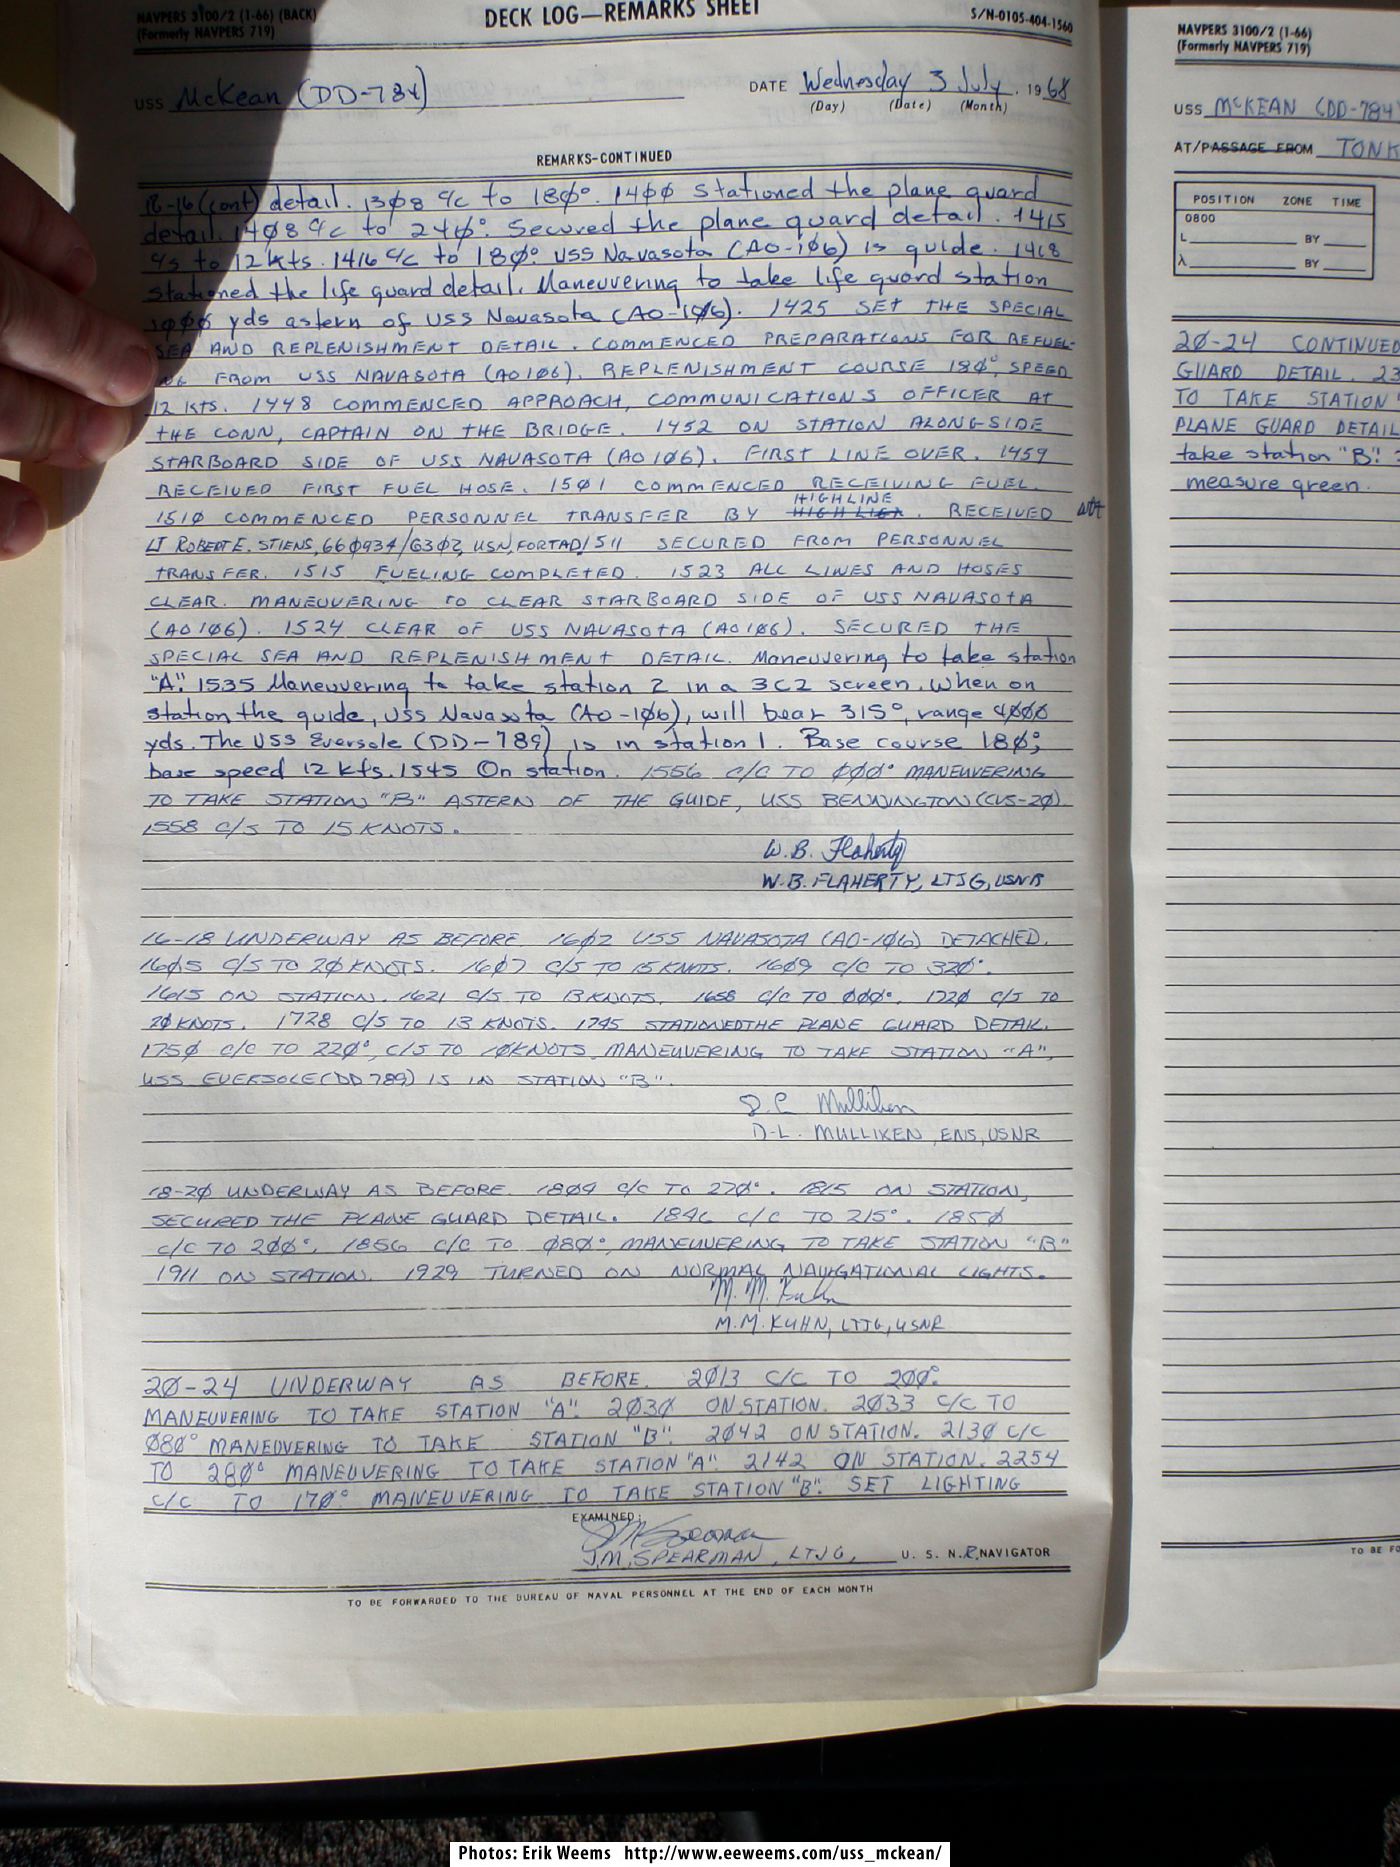 NAVPERS 3100/2 (1-66) (BACK)
(Formerly NAVPERS 719)
DECK LOG—REMARKS SHEET
S/N-0105-404-1560
USS McKean (DD-784)
DATE Wednesday 3 July, 1968
(Day) (Date) (Month)
REMARKS-CONTINUED
(cont) detail. 13Ø8 c/c to 18Ø°. 14ØØ Stationed the plane guard
detail. 14Ø8 c/c to 24Ø°. Secured the plane guard detail. 1415
c/s to 12 kts. 1416 c/c to 18Ø°. USS Navasota (AO-1Ø6) is guide. 1418
Stationed the life guard detail. Maneuvering to take life guard station
1ØØØ yds astern of USS Navasota (AO-1Ø6). 1425 SET THE SPECIAL
SEA AND REPLENISHMENT DETAIL. COMMENCED PREPARATIONS FOR REFUEL-
ING FROM USS NAVASOTA (AO1Ø6). REPLENISHMENT COURSE 18Ø°, SPEED
12 KTS. 1448 COMMENCED APPROACH, COMMUNICATIONS OFFICER AT
THE CONN, CAPTAIN ON THE BRIDGE. 1452 ON STATION ALONGSIDE
STARBOARD SIDE OF USS NAVASOTA (AO1Ø6). FIRST LINE OVER. 1459
RECEIVED FIRST FUEL HOSE. 15Ø1 COMMENCED RECEIVING FUEL.
HIGHLINE
151Ø COMMENCED PERSONNEL TRANSFER BY . RECEIVED
LT ROBERT E. STIENS, 66Ø934/63Ø2, USN, FORTAD. 1511 SECURED FROM PERSONNEL
TRANSFER. 1515 FUELING COMPLETED. 1523 ALL LINES AND HOSES
CLEAR. MANEUVERING TO CLEAR STARBOARD SIDE OF USS NAVASOTA
(AO1Ø6). 1524 CLEAR OF USS NAVASOTA (AO1Ø6). SECURED THE
SPECIAL SEA AND REPLENISHMENT DETAIL. Maneuvering to take station
"A". 1535 Maneuvering to take station 2 in a 3C2 screen. When on
station the guide, USS Navasota (AO-1Ø6), will bear 315°, range 4ØØØ
yds. The USS Eversole (DD-789) is in station 1. Base course 18Ø°,
base speed 12 kts. 1545 On station. 1556 C/C TO ØØØ° MANEUVERING
TO TAKE STATION "B" ASTERN OF THE GUIDE, USS BENNINGTON (CVS-2Ø).
1558 C/S TO 15 KNOTS.
W.B. Flaherty
W.B. FLAHERTY, LTJG, USNR
16-18 UNDERWAY AS BEFORE. 16Ø2 USS NAVASOTA (AO-1Ø6) DETACHED.
16Ø5 C/S TO 2Ø KNOTS. 16Ø7 C/S TO 15 KNOTS. 16Ø9 C/C TO 32Ø°.
1615 ON STATION. 1621 C/S TO 13 KNOTS. 1658 C/C TO ØØØ°. 172Ø C/S TO
2Ø KNOTS. 1728 C/S TO 13 KNOTS. 1745 STATIONED THE PLANE GUARD DETAIL.
175Ø C/C TO 22Ø°, C/S TO 1Ø KNOTS, MANEUVERING TO TAKE STATION "A",
USS EVERSOLE (DD789) IS IN STATION "B".
D L Mulliken
D-L. MULLIKEN, ENS, USNR
18-2Ø UNDERWAY AS BEFORE. 18Ø9 C/C TO 27Ø°. 1815 ON STATION,
SECURED THE PLANE GUARD DETAIL. 1846 C/C TO 215°. 185Ø
C/C TO 2ØØ°. 1856 C/C TO Ø8Ø°, MANEUVERING TO TAKE STATION "B"
1911 ON STATION. 1929 TURNED ON NORMAL NAVIGATIONAL LIGHTS.
M. M. Kuhn
M.M. KUHN, LTJG, USNR
2Ø-24 UNDERWAY AS BEFORE. 2Ø13 C/C TO 2ØØ°.
MANEUVERING TO TAKE STATION "A". 2Ø3Ø ON STATION. 2Ø33 C/C TO
Ø8Ø° MANEUVERING TO TAKE STATION "B". 2Ø42 ON STATION. 213Ø C/C
TO 28Ø° MANEUVERING TO TAKE STATION "A". 2142 ON STATION. 2254
C/C TO 17Ø° MANEUVERING TO TAKE STATION "B". SET LIGHTING
EXAMINED:
JM Spearman
J.M. SPEARMAN, LTJG, U. S. N.R. NAVIGATOR
TO BE FORWARDED TO THE BUREAU OF NAVAL PERSONNEL AT THE END OF EACH MONTH
NAVPERS 3100/2 (1-66)
(Formerly NAVPERS 719)
USS McKEAN (DD-784)
AT/PASSAGE FROM TONK
POSITION ZONE TIME
0800
L BY
λ BY
2Ø-24 CONTINUED
GUARD DETAIL. 23
TO TAKE STATION "
PLANE GUARD DETAIL
take station "B".
measure green.
TO BE FO
Photos: Erik Weems http://www.eeweems.com/uss_mckean/